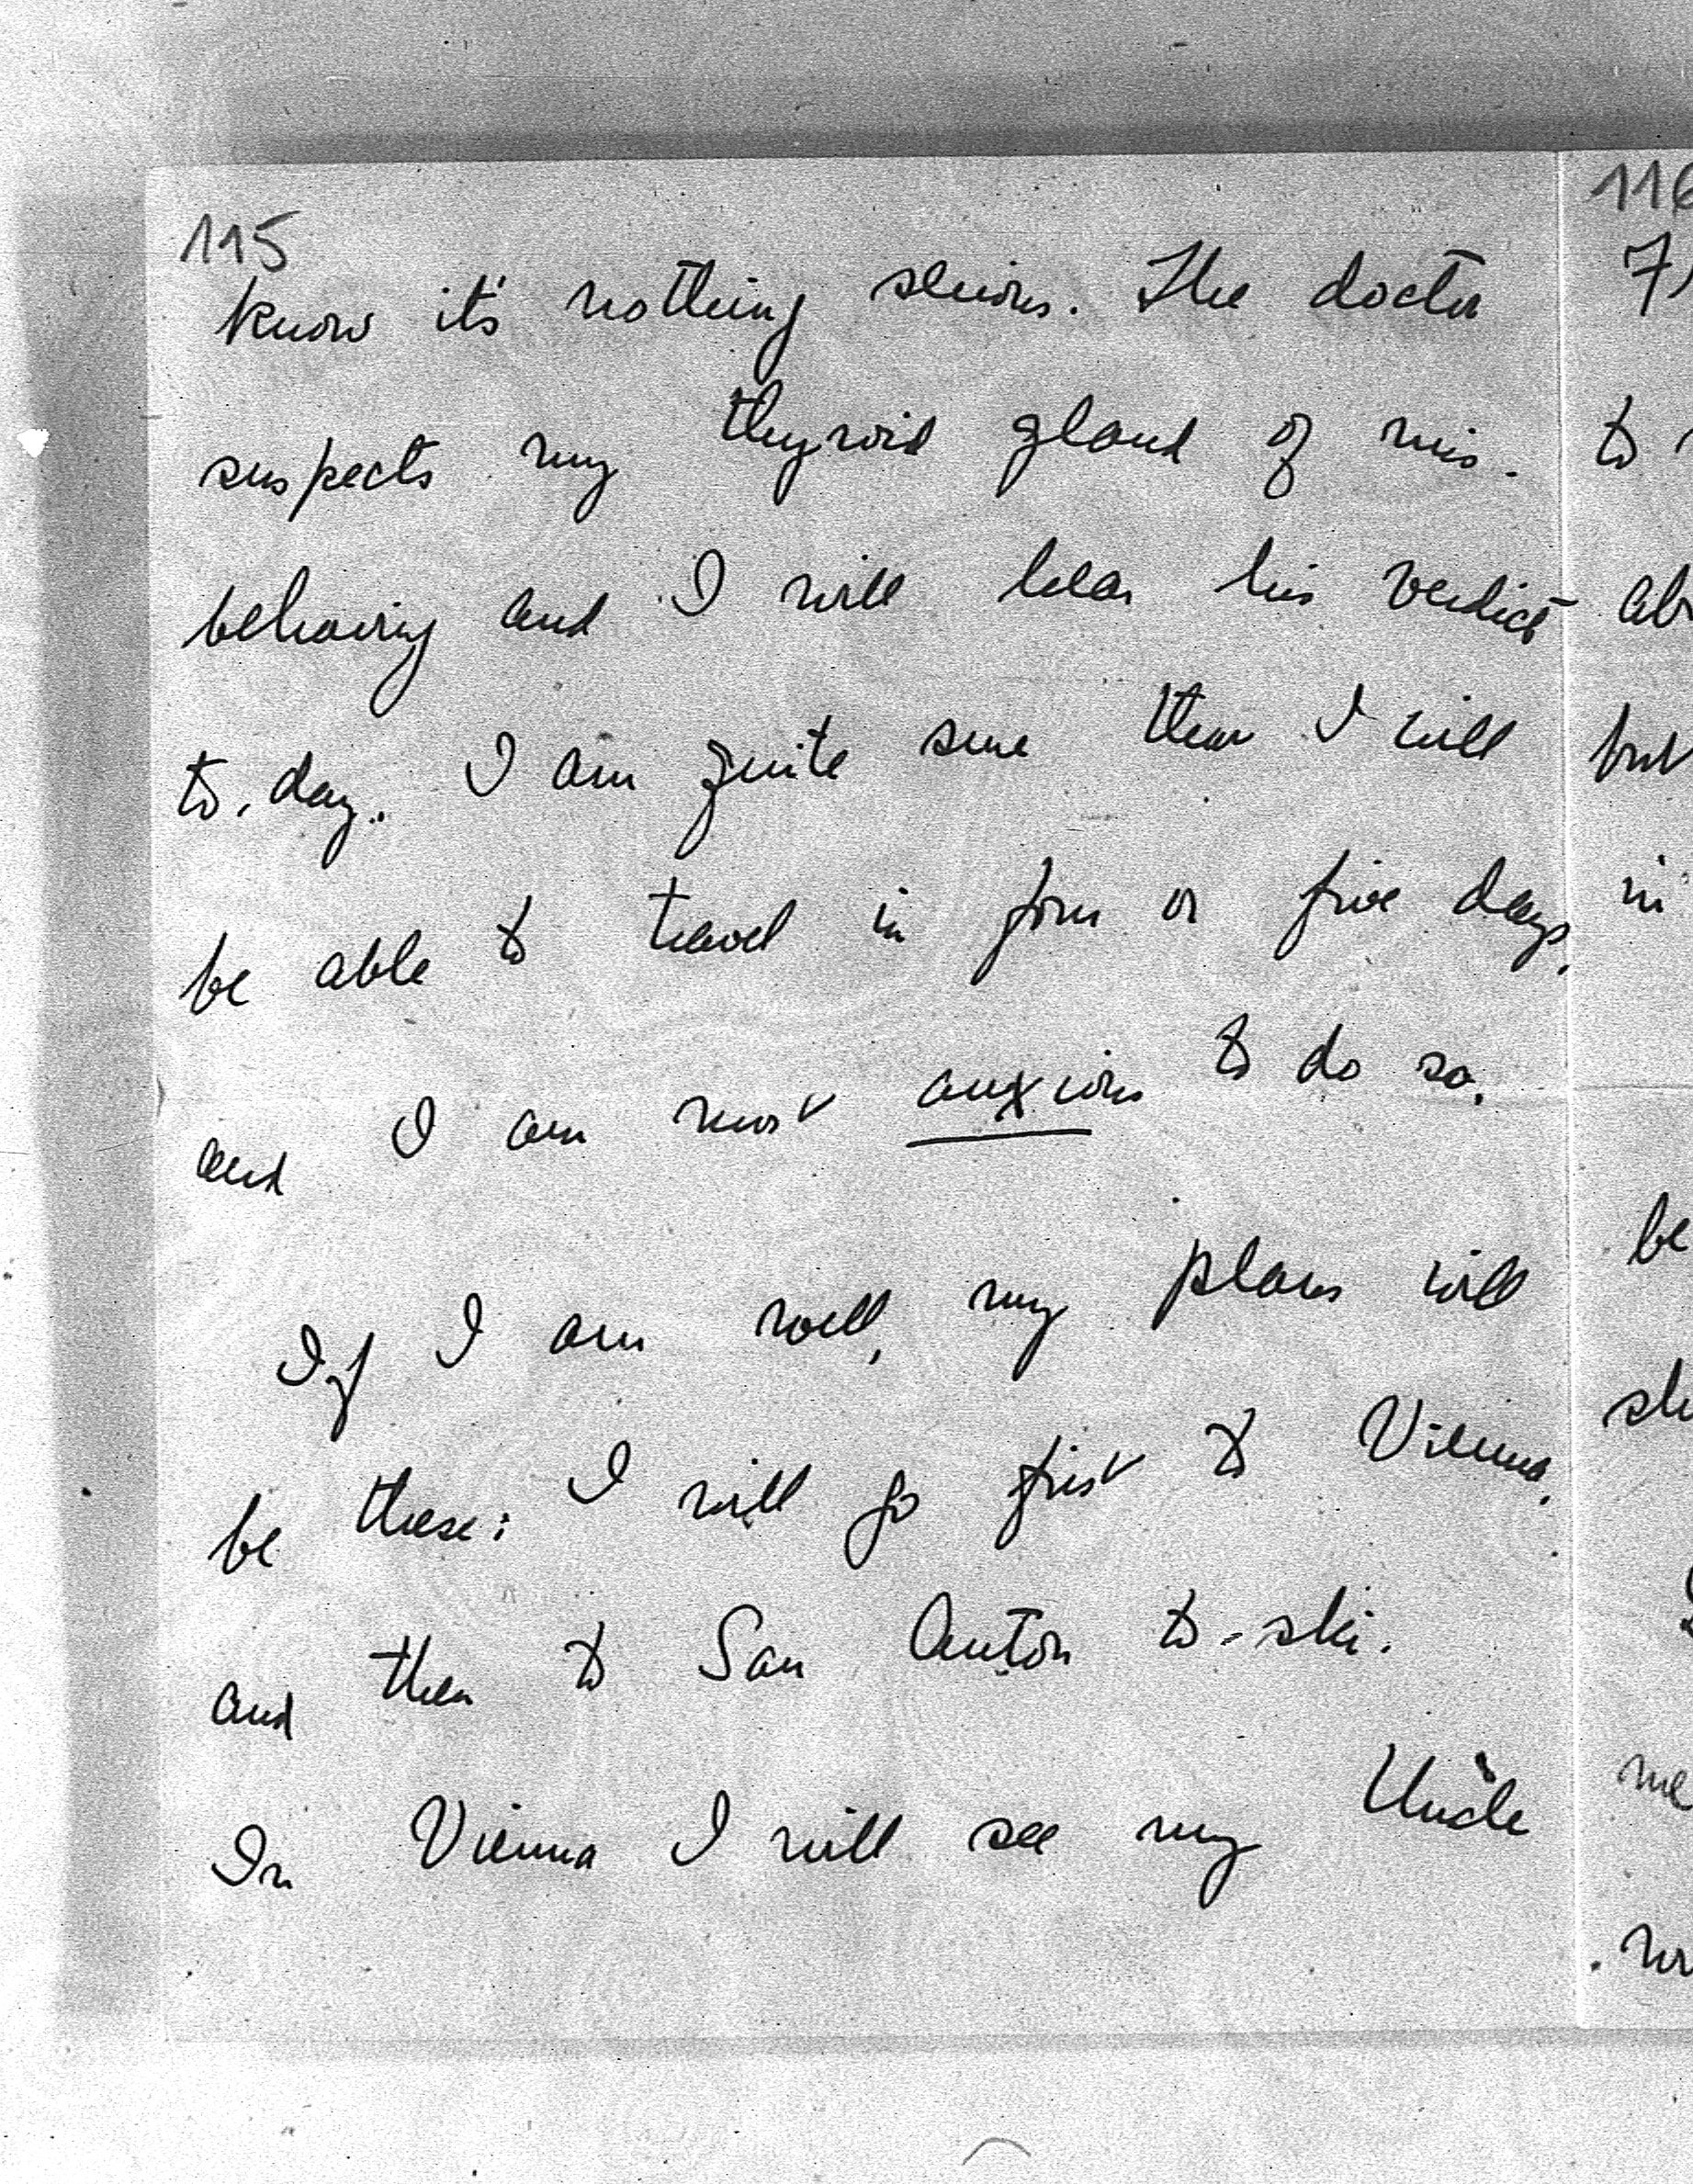 115
know it's nothing serious. The doctor
suspects my thyroid gland of mis-
behaving and I will hear his verdict
to-day. I am quite sure that I will
be able to travel in four or five days,
and I am most anxious to do so.
If I am well, my plans will
be these: I will go first to Vienna,
and then to San Anton to ski.
In Vienna I will see my Uncle
116
7)
to
but
in
be
me